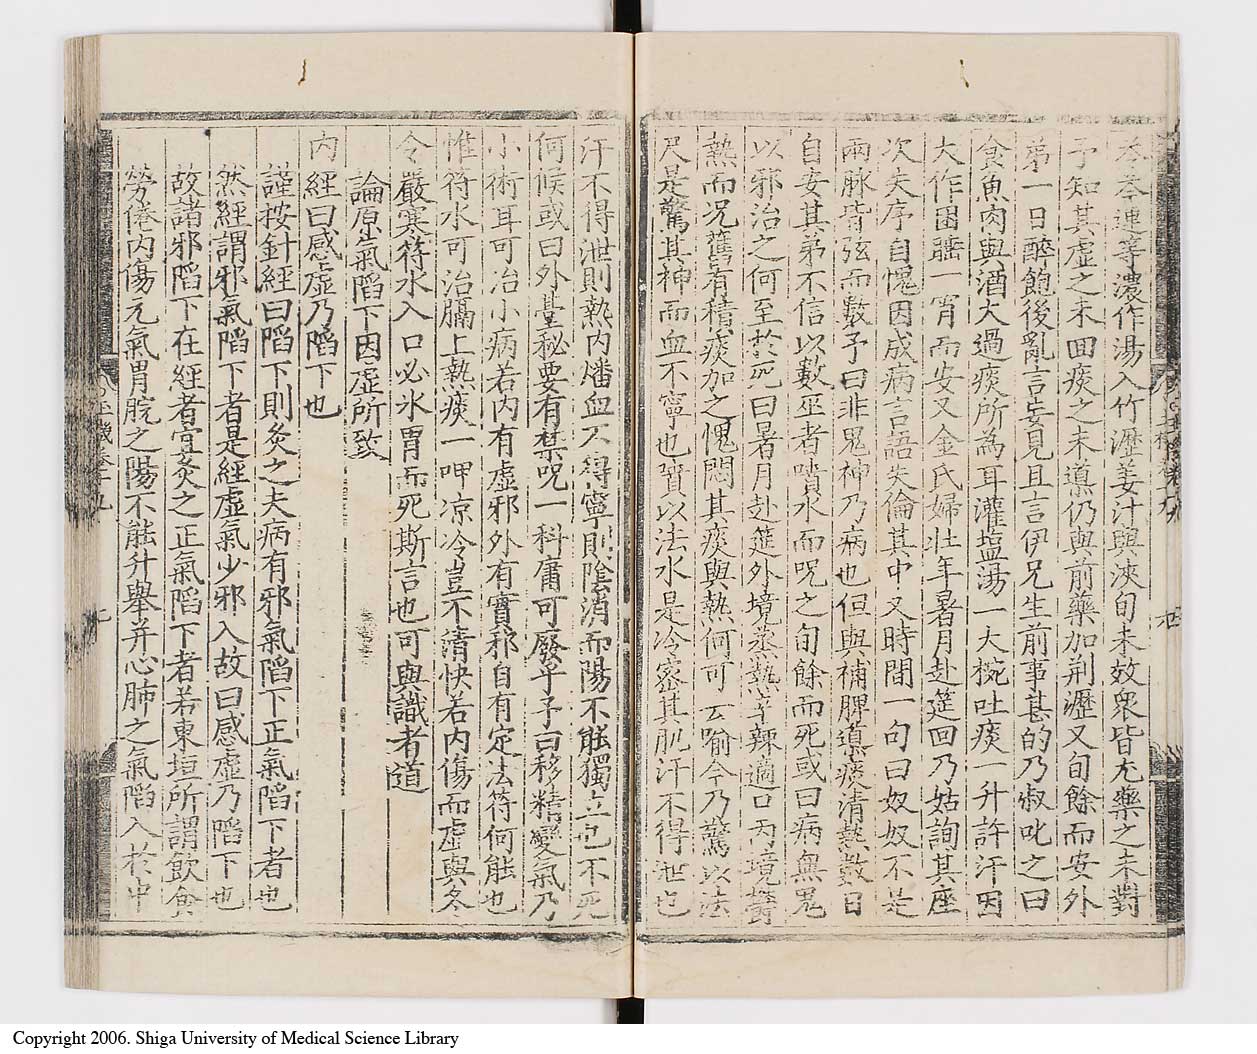 苓參連等濃作湯入竹瀝姜汁與浹旬未效衆皆尤藥之未對
予知其虛之未回痰之未導仍與前藥加荊瀝又旬餘而安外
弟一日醉飽後亂言妄見且言伊兄生前事甚的乃叔叱之曰
食魚肉與酒大過痰所為耳灌塩湯一大椀吐痰一升許汗因
大作困睡一宵而安又金氏婦壯年暑月赴筵回乃姑詢其座
次失序自愧因成病言語失倫其中又時間一句曰奴奴不是
兩脉皆弦而數予曰非鬼神乃病也但與補脾導痰清熱數日
自安其弟不信以數巫者噴水而呪之旬餘而死或曰病無鬼
以邪治之何至於死曰暑月赴筵外境蒸熱辛辣適口內境鬱
熱而况舊有積痰加之愧悶其痰與熱何可云喻今乃驚以法
尺是驚其神而血不寧也貭以法水是冷密其肌汗不得泄也
汗不得泄則熱內燔血不得寧則陰消而陽不能獨立也不死
何候或曰外臺秘要有禁呪一科庸可廢乎予曰移精變氣乃
小術耳可治小病若內有虛邪外有實邪自有定法符何能也
惟符水可治膈上熱痰一呷凉冷豈不清快若內傷而虛與冬
令嚴寒符水入口必氷胃而死斯言也可與識者道
論原氣陷下因虛所致
內經曰感虛乃陷下也
謹按針經曰陷下則灸之夫病有邪氣陷下正氣陷下者也
然經謂邪氣陷下者是經虛氣少邪入故曰感虛乃陷下也
故諸邪陷下在經者宜灸之正氣陷下者若東垣所謂飲食
勞倦內傷元氣胃脘之陽不能升舉并心肺之氣陷入於中
Copyright 2006. Shiga University of Medical Science Library